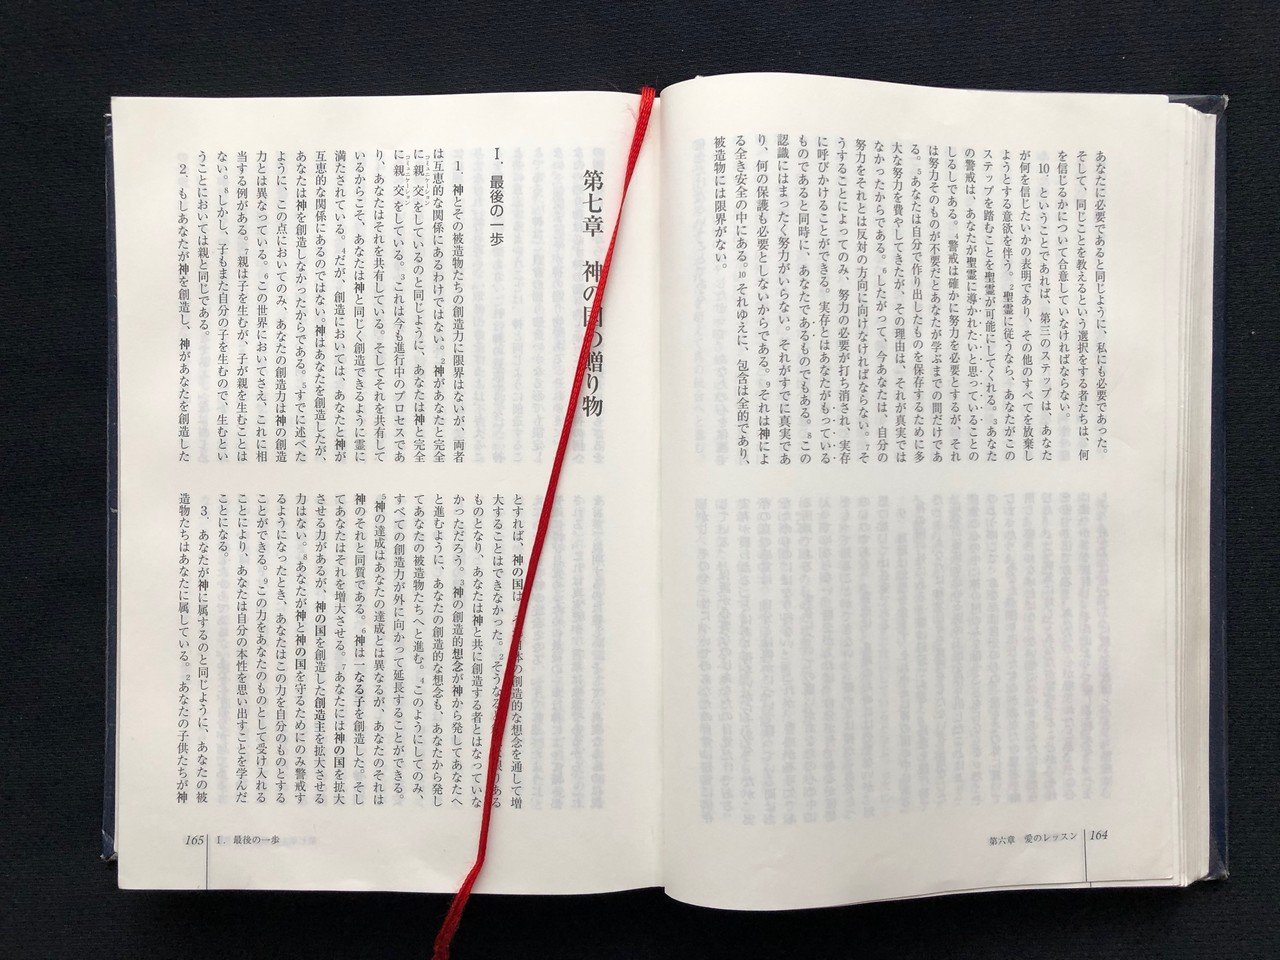 あなたに必要であると同じように、私にも必要であった。
そして、同じことを教えるという選択をする者たちは、何
を信じるかについて合意していなければならない。
10、ということであれば、第三のステップは、あなた
が何を信じたいかの表明であり、その他のすべてを放棄し
ようとする意欲を伴う。2聖霊に従うなら、あなたがこの
ステップを踏むことを聖霊が可能にしてくれる。3あなた
の警戒は、あなたが聖霊に導かれたいと思っていることの
しるしである。4警戒は確かに努力を必要とするが、それ
は努力そのものが不要だとあなたが学ぶまでの間だけであ
る。5あなたは自分で作り出したものを保存するために多
大な努力を費やしてきたが、その理由は、それが真実では
なかったからである。6したがって、今あなたは、自分の
努力をそれとは反対の方向に向けなければならない。7そ
うすることによってのみ、努力の必要が打ち消され、実存
に呼びかけることができる。実存とはあなたがもっている
ものであると同時に、あなたであるものでもある。8この
認識にはまったく努力がいらない。それがすでに真実であ
り、何の保護も必要としないからである。9それは神によ
る全き安全の中にある。10それゆえに、包含は全的であり、
被造物には限界がない。
第六章 愛のレッスン 164
第七章 神の国の贈り物
Ⅰ. 最後の一歩
1、神とその被造物たちの創造力に限界はないが、両者
は互恵的な関係にあるわけではない。2神があなたと完全
に親交コミュニケーションをしているのと同じように、あなたは神と完全
に親交コミュニケーションをしている。3これは今も進行中のプロセスであ
り、あなたはそれを共有している。そしてそれを共有して
いるからこそ、あなたは神と同じく創造できるように霊に
満たされている。4だが、創造においては、あなたと神が
互恵的な関係にあるのではない。神はあなたを創造したが、
あなたは神を創造しなかったからである。5すでに述べた
ように、この点においてのみ、あなたの創造力は神の創造
力とは異なっている。6この世界においてさえ、これに相
当する例がある。7親は子を生むが、子が親を生むことは
ない。8しかし、子もまた自分の子を生むので、生むとい
うことにおいては親と同じである。
2、もしあなたが神を創造し、神があなたを創造した
とすれば、神の国は、それ自体の創造的な想念を通して増
大することはできなかった。2そうなる
ものとなり、あなたは神と共に創造する者とはなっていな
かっただろう。3神の創造的想念が神から発してあなたへ
と進むように、あなたの創造的な想念も、あなたから発し
てあなたの被造物たちへと進む。4このようにしてのみ、
すべての創造力が外に向かって延長することができる。
5神の達成はあなたの達成とは異なるが、あなたのそれは
神のそれと同質である。6神は一なる子を創造した。そし
てあなたはそれを増大させる。7あなたには神の国を拡大
させる力があるが、神の国を創造した創造主を拡大させる
力はない。8あなたが神と神の国を守るためにのみ警戒す
るようになったとき、あなたはこの力を自分のものとする
ことができる。9この力をあなたのものとして受け入れる
ことにより、あなたは自分の本性を思い出すことを学んだ
ことになる。
3、あなたが神に属するのと同じように、あなたの被
造物たちはあなたに属している。2あなたの子供たちが神
165 Ⅰ. 最後の一歩